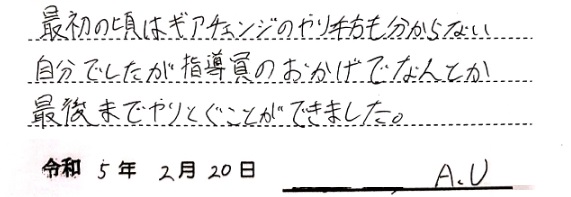 最初の頃はギアチェンジのやり方も分からない
自分でしたが指導員のおかげでなんとか
最後までやりとぐことができました。
令和 5年 2月 20日 A.U